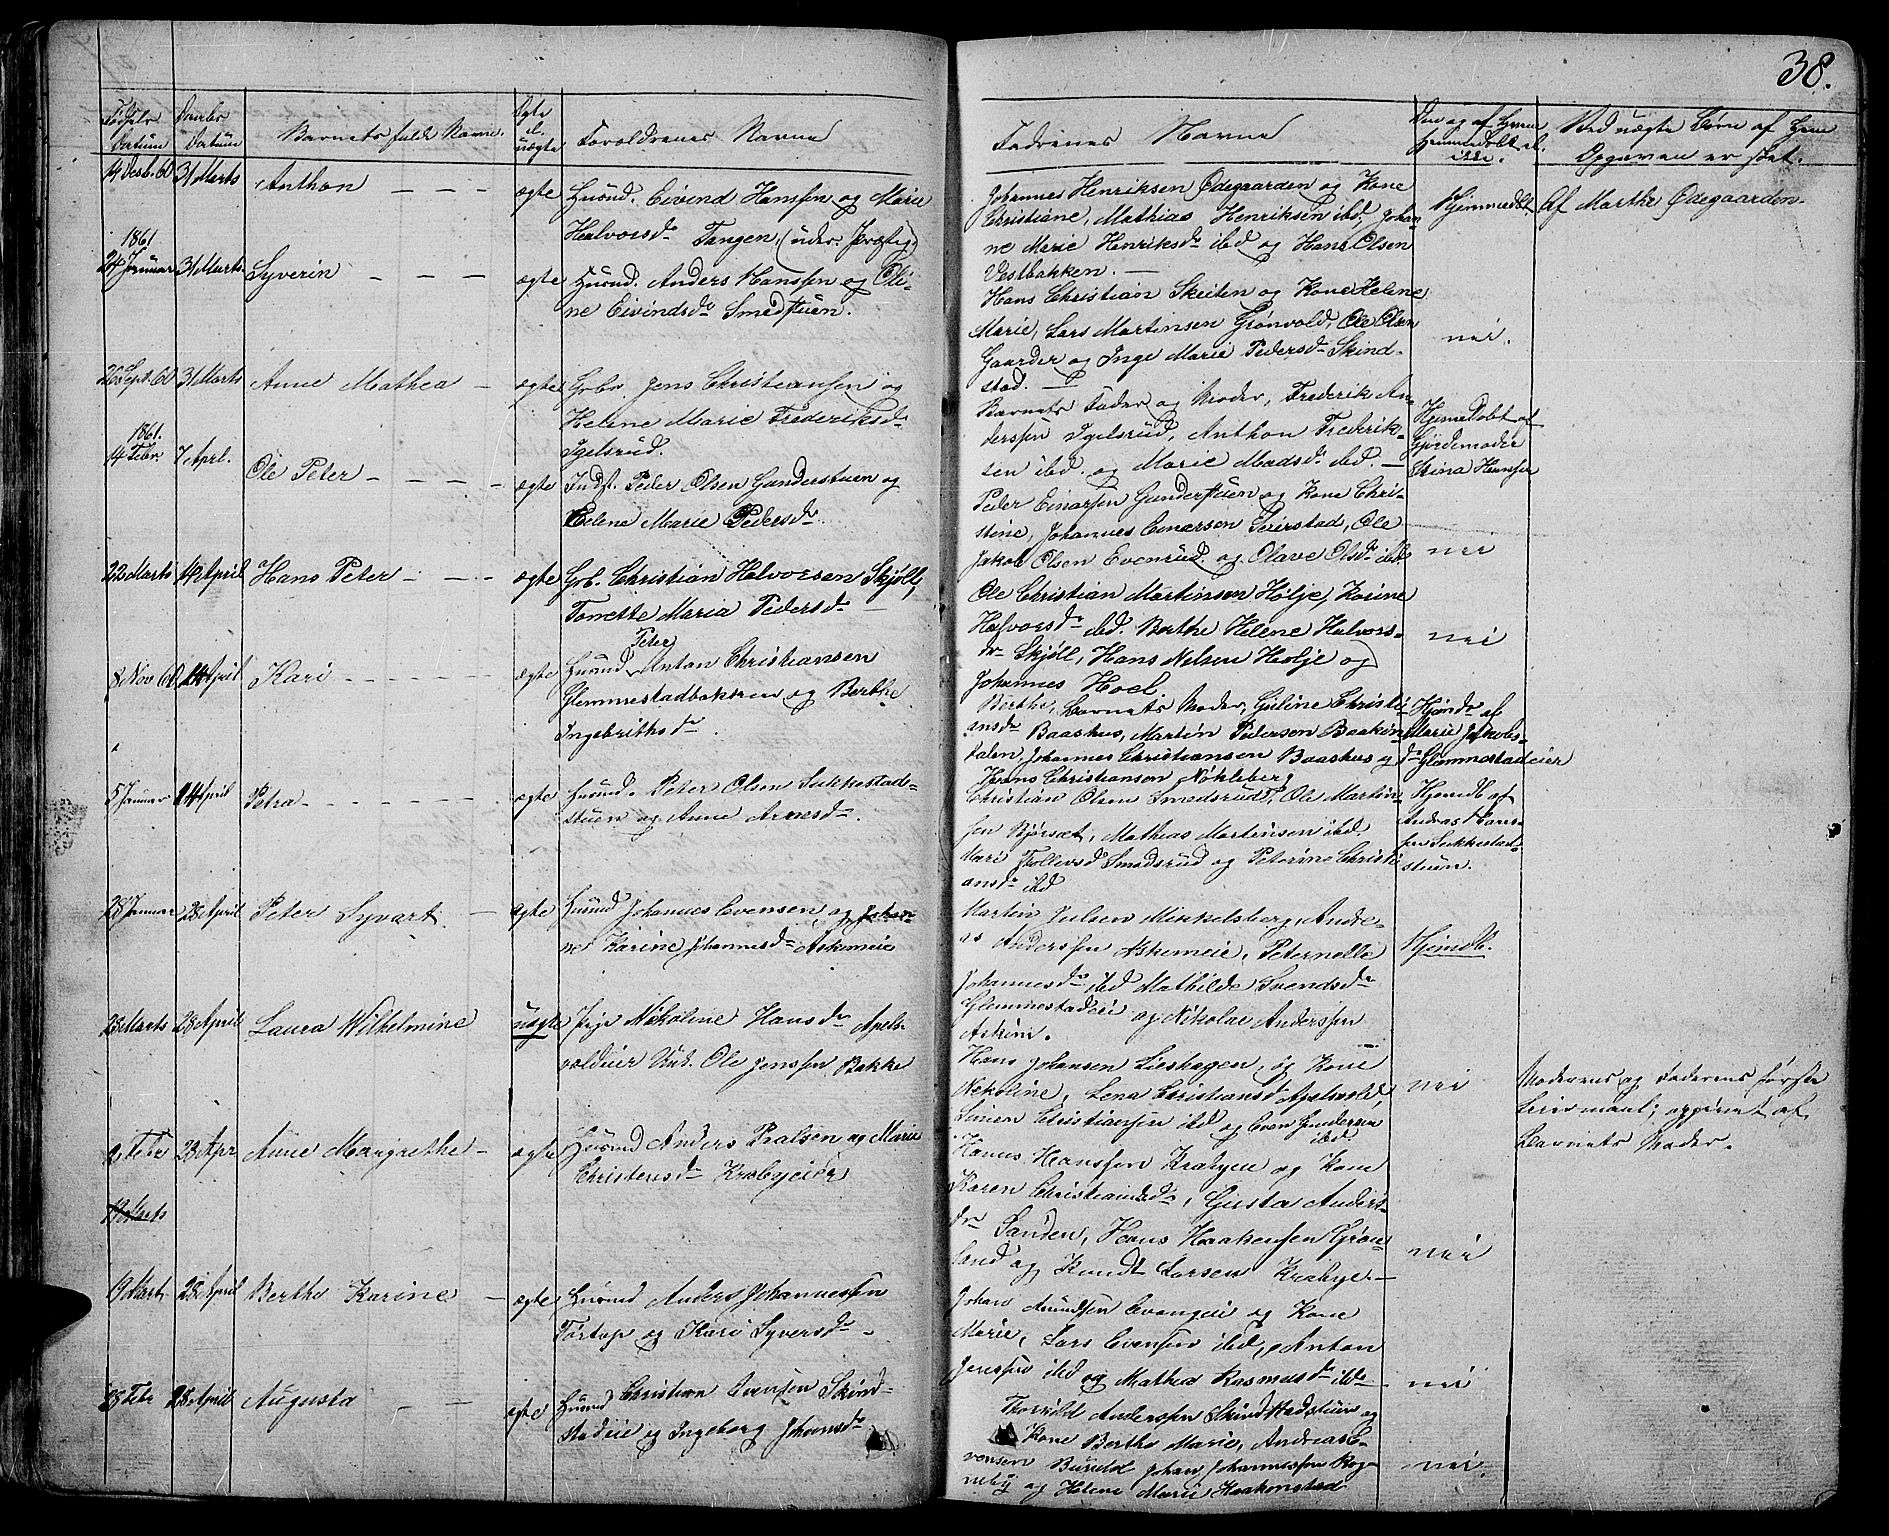 38.
Fødsels Datum
Daabs Datum
Barnets fulde Navne.
Ægte el. uægte
Foreldrenes Navne
Fadrenes Navne
Om og af hvem hjemmedøbt el. ikke.
Ved uægte Børn af hvem Opgaven er skeet.
14 Decb. 60 31 Marts Anthon — — — ægte Husmd. Eivind Hanssen og Marie
Halvorsdr Tangen, (under Præstegd)
Johannes Henriksen Ødegaarden og Kone
Christiane, Mathias Henriksen ibd, Johan-
ne Marie Henriksdr ibd og Hans Olsen
Vestbakken. —
Hjemmedøbt Af Marthe Ødegaarden.
1861
24 Januar 31 Marts Syverin — — — ægte Husmd. Anders Hanssen og Oli-
ne Eivindsdr Smedstuen.
Hans Christian Skeiten og Kone Helene
Marie, Lars Martinsen Grønvold, Ole Olsen
Gaarder og Inge Marie Pedersdr Skind-
stad. —
nei.
26 Sept. 60 31 Marts Anne Mathea — ægte Grbr. Jens Christiansen og
Helene Marie Frederiksdr
Igelsrud.
Barnets Fader og Moder, Frederik An-
derssen Igelsrud, Anthon Frederik-
sen ibd. og Marie Madsdr ibd. —
Hjemedøbt af
Gjordemoder
Stina Hanssen
1861.
14 Febr. 7 Aprl. Ole Peter — — — — ægte Indst. Peder Olsen Gunderstuen og
Helene Marie Pedersdr.
Peder Einarsen Gunderstuen og Kone Chri-
stine, Johannes Einarsen Seierstad, Ole
Jakob Olsen Evenrud og Olave Olsdr ibd.
nei
22 Marts 14 April Hans Peter — — — ægte Grb. Christian Halvorsen Skjøll,
Tonette Maria Pedersdr —
Ole Christian Martinsen Hølje, Karine
Halvorsdr ibd. Berthe Helene Halvors-
dr Skjøll, Hans Nilsen Hølje og
Johannes Hoel
nei
8 Nov 60 14 April Kari — — — — ægte Husmd Peter Anton Christiansen
Glemmestadbakken og Berthe
Ingebrithsdr
Berthe, Barnets Moder, Guline Christi-
ansdr Baashus, Martin Pedersen Baakin-
dalen, Johannes Christiansen Baashus og
Hans Christiansen Nøkleberg
Hjemdr af
Marie Jakobs-
dr Glemmestadeier
5 Januar 14 April Petra — — — — ægte Husmd. Peter Olsen Sukkestad-
stuen og Anne Arnesdr.
Christian Olsen Smedsrud, Ole Martin-
sen Bjørset, Mathias Martinsen ibd.
Mari Tollevsdr Smedsrud og Peterine Christi-
ansdr ibd
Hjemdb af
Andreas Hans-
sen Sukkestad-
stuen.
28 Januar 28 April Peter Syvart — ægte Husmd Johannes Evensen og Johan-
ne Karine Johannesdr Askimeie
Martin Julsen Mikkelsberg, Andre-
as Anderssen Askimeie, Peternelle
Johannesdr ibd Mathilde Svendsdr
Glemmestadeie og Nikolai Anderssen
Askim.
Hjemdb.
23 Marts 28 April Laura Wilhelmine uægte Pige Nikoline Hansdr Apels-
voldeier Unk. Ole Jenssen Bakke
Hans Johansen Lieshagen, og Kone
Nikoline, Lena Christiansd Apelsvold,
Simen Christiansen ibd og Even Gundersen
ibd
nei
Moderens og Faderens første
Leiermaal; opgivet af
Barnets Moder.
9 Febr 28 Apr Anne Margrethe — ægte Husmd Anders Paalsen og Marie
Christensdr Krabyeier
Hanus Hanssen Krabyeie og Kone
Karen Christiansdr, Gusta Anders-
dr Sanden, Hans Haakensen Grøn-
land og Knud Larsen Krabye. —
nei
19 Marts
19 Mart. 28 April Berthe Karine — ægte Husmd Anders Johannessen
Tørtop og Kari Syversdr.
Johan Amundsen Evangeie og Kone
Marie, Lars Evensen ibd, Anton
Jenssen ibd og Mathea Rasmusdr ibd.
nei
28 Febr 28 April Augusta — — ægte Husmd Christian Evensen Skind-
stadeie og Ingeborg Johansdr
Thorvild Anderssen Skindstadstuen og
Kone Berthe Marie, Andreas E-
vensen Buruld Johan Johannessen Rog-
neby og Helene Marie Haakenstad
nei.